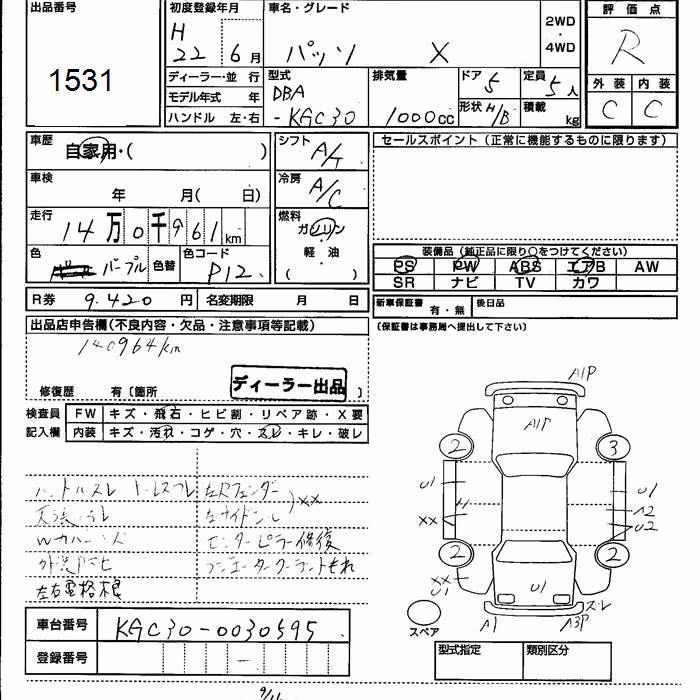 出品番号
1531
初度登録年月
H
22 6月
車名・グレード
パッソ X
2WD
・
4WD
評価点
R
外装 内装
C C
ディーラー・並行
モデル年式 年
ハンドル 左・右
型式
DBA
-KGC30
排気量
1000cc
ドア 5
形状 H/B
定員 5人
積載 kg
車歴
自家用・( )
車検
年 月( 日)
走行
14万0千961km
色
パープル
色替
色コード
P12
シフト
A/T
冷房
A/C
燃料
ガソリン
・
軽・油
( )
セールスポイント(正常に機能するものに限ります)
装備品(純正品に限り○をつけてください)
PS PW ABS エアB AW
SR ナビ TV カワ
R券 9.420円 名変期限 月 日
新車保証書 有・無 後日品
(保証書は事務局へ提出して下さい)
出品店申告欄(不良内容・欠品・注意事項等記載)
140964km
修復歴 有〔箇所
ディーラー出品
検査員 FW キズ・飛石・ヒビ割・リペア跡・X要
記入欄 内装 キズ・汚れ・コゲ・穴・スレ・キレ・破レ
ハンドルスレ
左Rフェンダー
XX
センターピラー修復
左右電格不良
車台番号 KGC30-0030595
登録番号 -
A1P
A1P
2 3
U1 U1
H A2
XX U2
2 2
XX
U1
U1
スレ
A1 A3P
スペア
型式指定 類別区分